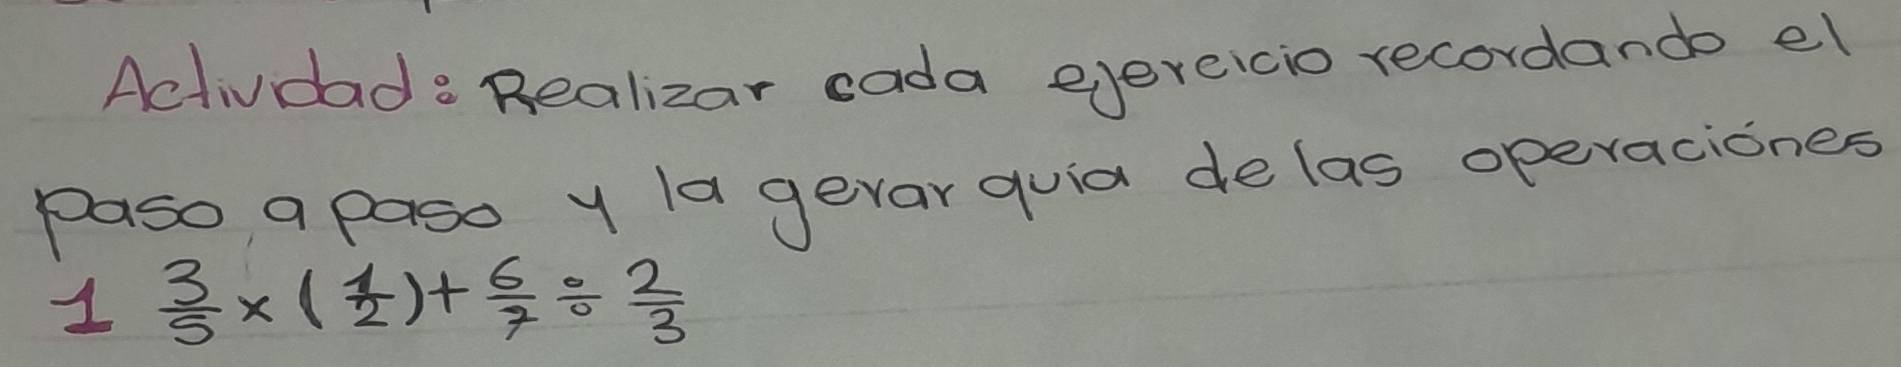 Actividad: Realizar cada ejercicio recordando el
paso a paso y la gerarquia de las operaciónes
1 3/5 × (1/2) + 6/7 ÷ 2/3